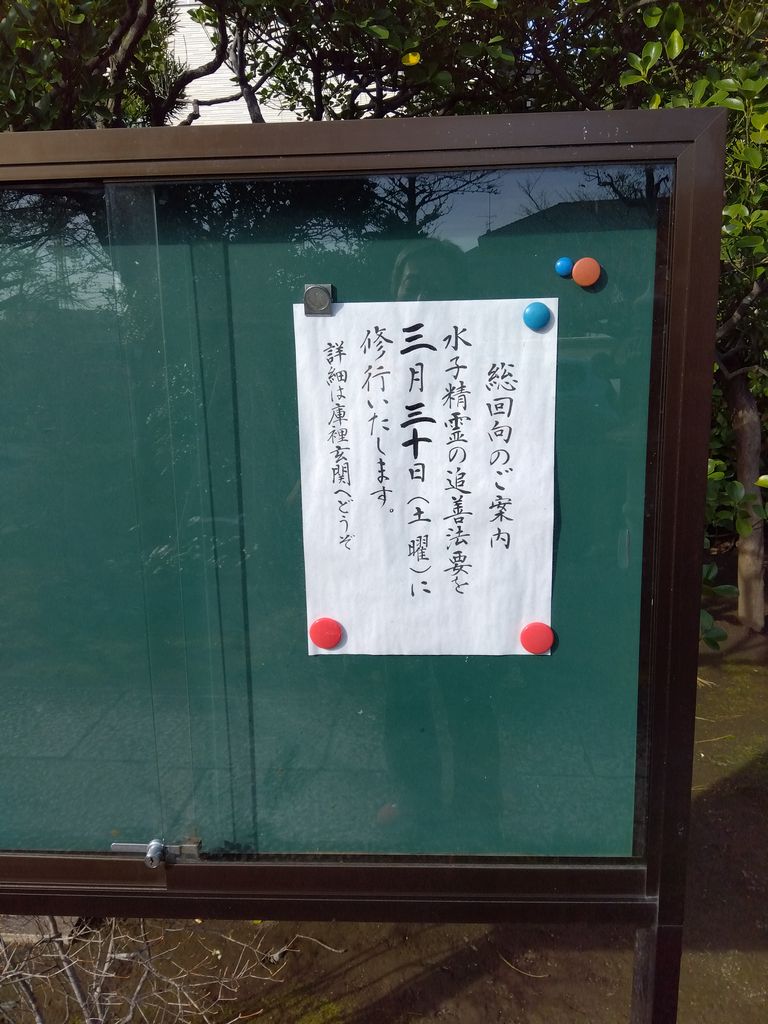 総回向のご案内
水子精霊の追善法要を
三月三十日(土曜)に
修行いたします。
詳細は庫裡玄関へどうぞ